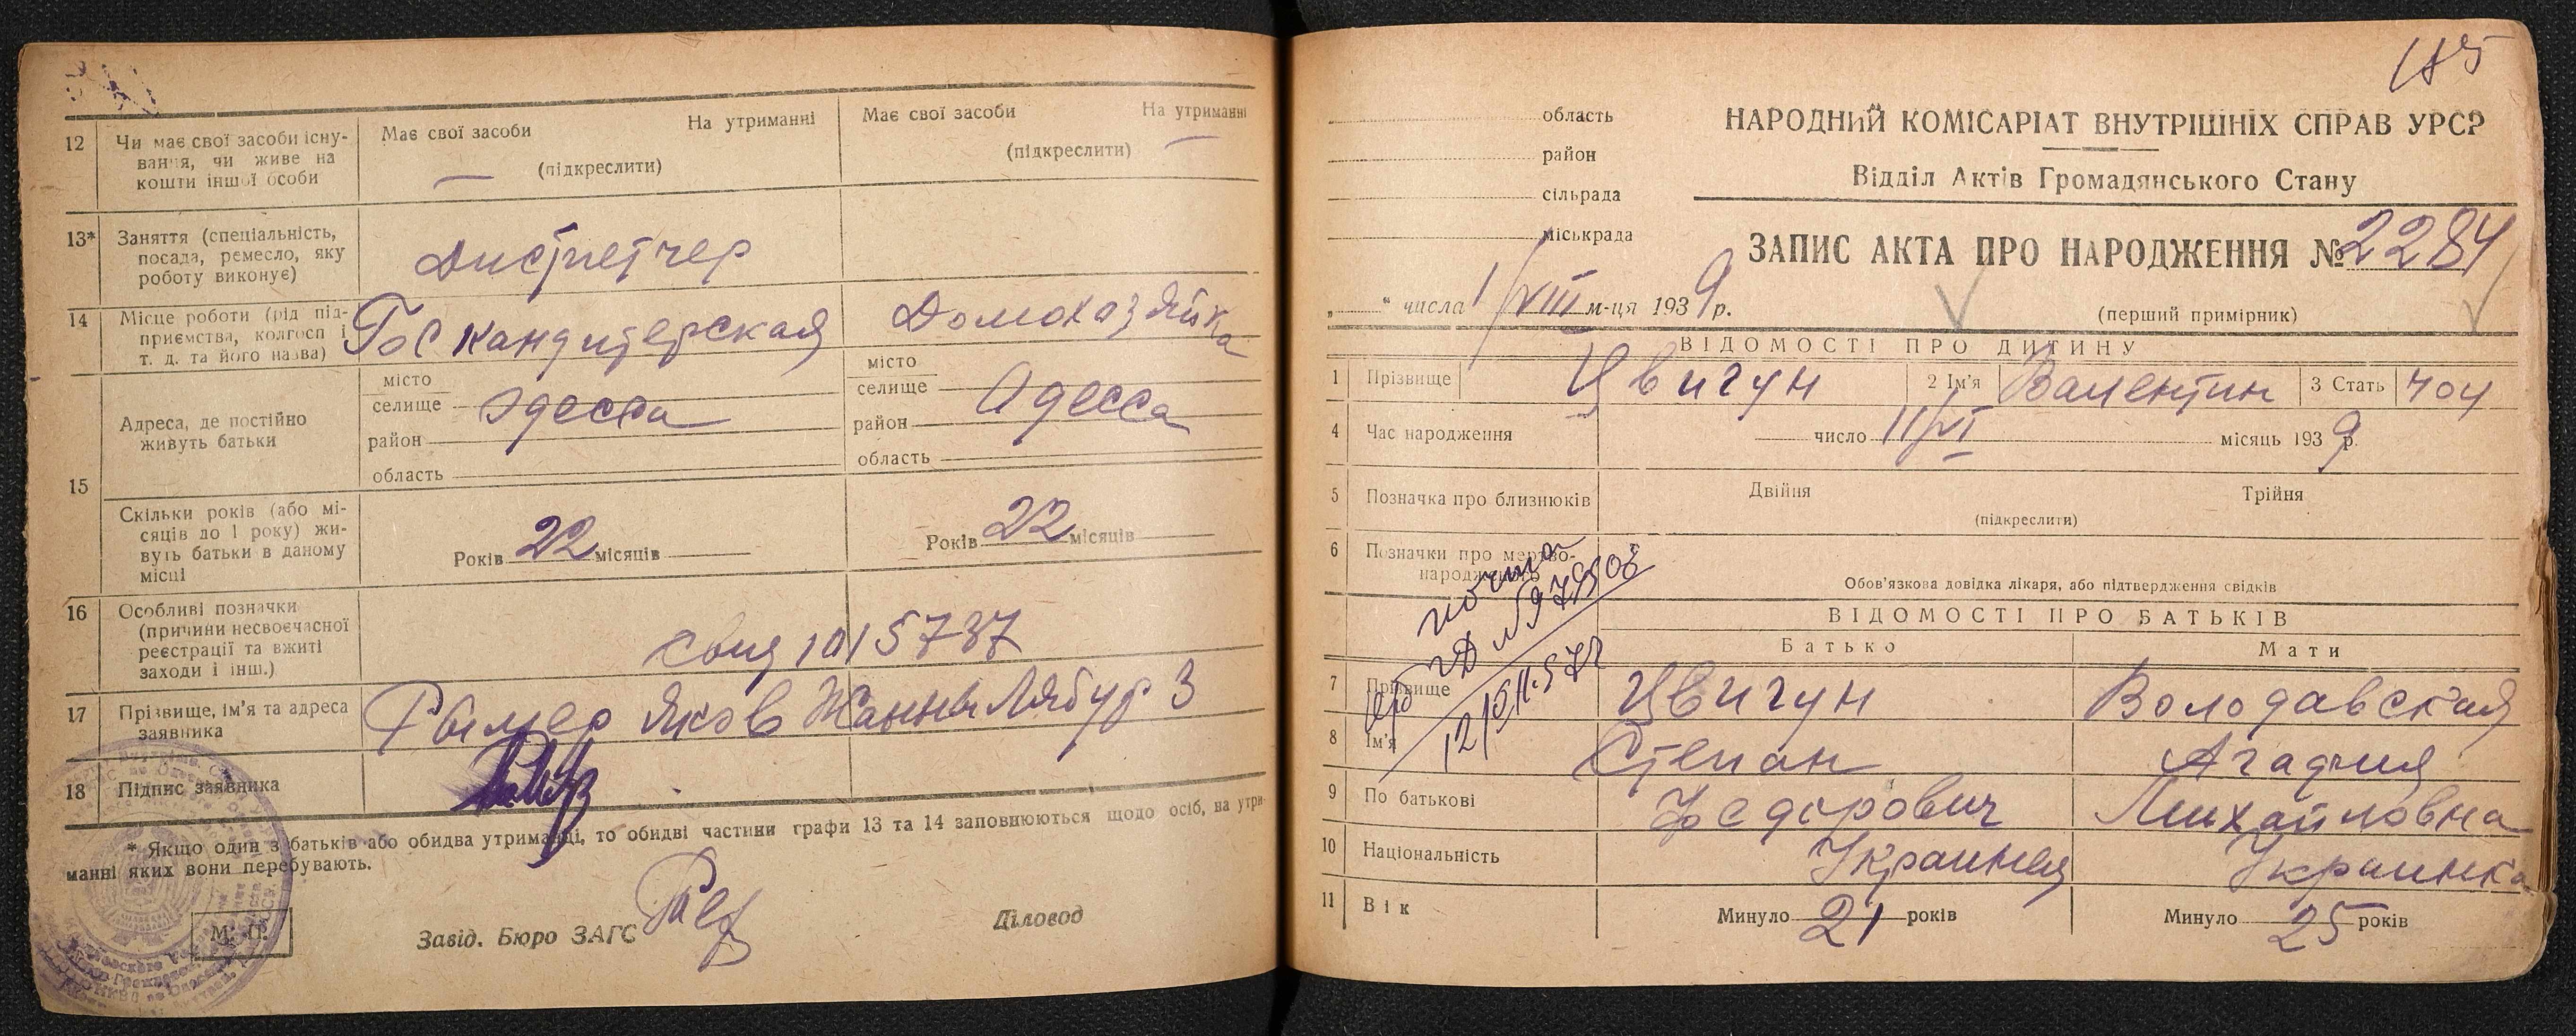 12 Чи має свої засоби існу-
вання, чи живе на
кошти іншої особи
Має свої засоби На утриманні
(підкреслити)
Має свої засоби На утриманні
(підкреслити)
13* Заняття (спеціальність,
посада, ремесло, яку
роботу виконує)
Диспетчер
14 Місце роботи (рід під-
приємства, колгосп і
т. д. та його назва)
Гос кандитерская
Домохазяйка
15
Адреса, де постійно
живуть батьки
місто
селище Одесса
район
область
місто
селище Одесса
район
область
Скільки років (або мі-
сяців до 1 року) жи-
вуть батьки в даному
місці
Років 22 місяців
Років 22 місяців
16 Особливі позначки
(причини несвоєчасної
реєстрації та вжиті
заходи і інш.)
17 Прізвище, ім'я та адреса
заявника
Яков Жанны Лябур 3
18 Підпис заявника
* Якщо один з батьків або обидва утриманці, то обидві частини графи 13 та 14 заповнюються щодо осіб, на утри-
манні яких вони перебувають.
М. П.
Завід. Бюро ЗАГС
Діловод
185
область
район
сільрада
міськрада
НАРОДНИЙ КОМІСАРІАТ ВНУТРІШНІХ СПРАВ УРСР
Відділ Актів Громадянського Стану
ЗАПИС АКТА ПРО НАРОДЖЕННЯ № 2284
„ “ числа 1/VIII м-ця 1939 р.
(перший примірник)
ВІДОМОСТІ ПРО ДИТИНУ
1 Прізвище Цвигун 2 Ім'я Валентин 3 Стать чол
4 Час народження число 11/VI місяць 1939 р.
5 Позначка про близнюків Двійня Трійня
(підкреслити)
6 Позначки про мертво-
народженого
Обов'язкова довідка лікаря, або підтвердження свідків
ВІДОМОСТІ ПРО БАТЬКІВ
Батько Мати
7 Прізвище Цвигун Володавская
8 Ім'я Степан Агафия
9 По батькові Федорович Михайловна
10 Національність Украинец Украинка
11 Вік Минуло 21 років Минуло 25 років